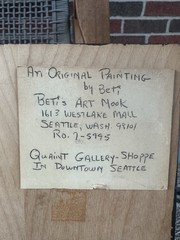 An Original Painting
by Beti
Beti's Art Nook
1613 Westlake Mall
Seattle, Wash. 98101
Quaint Gallery-Shoppe
In Downtown Seattle